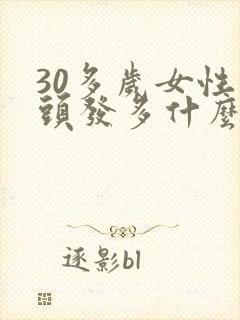 30多歲女性
頭發多什麼
逐影bl